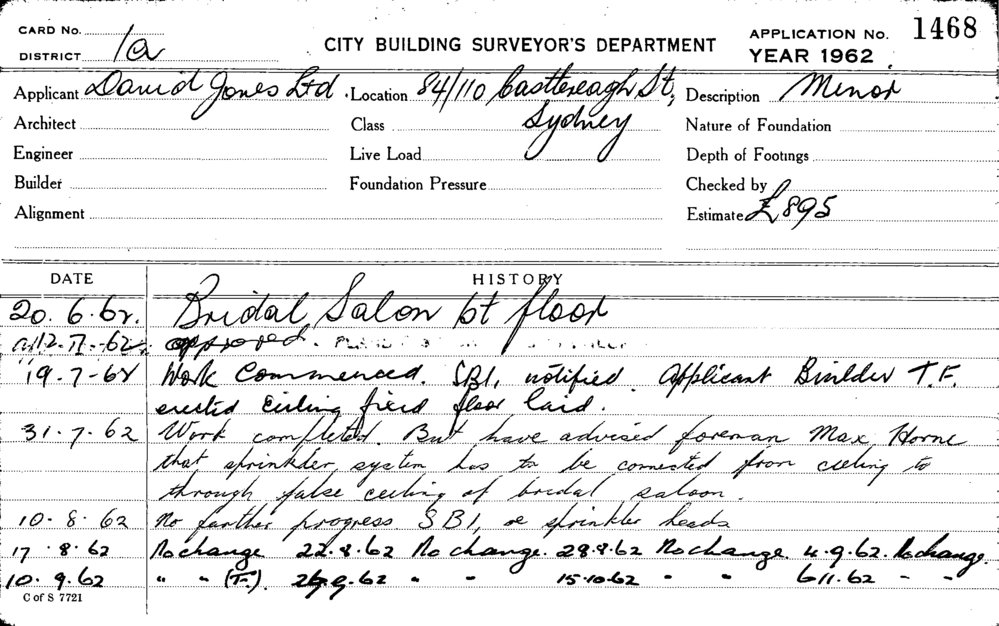 CARD No.
DISTRICT 1a
CITY BUILDING SURVEYOR'S DEPARTMENT
APPLICATION No. 1468
YEAR 1962
Applicant David Jones Ltd. Location 84/110 Castlereagh St, Description Minor
Architect Class Sydney Nature of Foundation
Engineer Live Load Depth of Footings
Builder Foundation Pressure Checked by
Alignment Estimate £895
DATE HISTORY
20.6.62. Bridal Salon 6t floor
12.7.-62. approved.
19-7-62 Work Commenced. SB1, notified. Applicant Builder T.F.
erected ceiling fixed floor laid.
31.7.62 Work completed. But have advised foreman Max Horne
that sprinkler system has to be connected from ceiling to
through false ceiling of bridal saloon.
10.8.62 No further progress SB1, re sprinkler heads
17.8.62 No change. 22.8.62 No change. 29.8.62 No change. 4.9.62. No change.
10.9.62 " " (T.F.). " " 15.10.62 " " 6.11.62 " "
C of S 7721